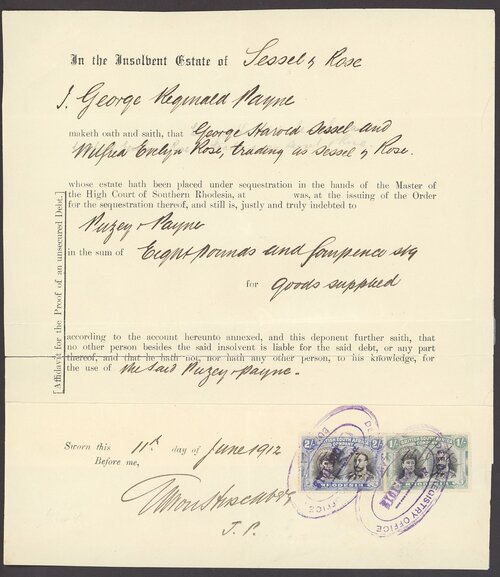 In the Insolvent Estate of Sessel & Rose
I, George Reginald Payne
maketh oath and saith, that George Harold Sessel and
Wilfrid Evelyn Rose, trading as Sessel & Rose.
whose estate hath been placed under sequestration in the hands of the Master of
the High Court of Southern Rhodesia, at was, at the issuing of the Order
for the sequestration thereof, and still is, justly and truly indebted to
Puzey & Payne
in the sum of Eight Pounds and fourpence stg
for goods supplied
according to the account hereunto annexed, and this deponent further saith, that
no other person besides the said insolvent is liable for the said debt, or any part
thereof, and that he hath not, nor hath any other person, to his knowledge, for
the use of the said Puzey & Payne.
[Affidavit for the Proof of an unsecured Debt.]
Sworn this 11th day of June 1912
Before me,
J. P.
2/- BRITISH SOUTH AFRICA 2/-
RHODESIA
1/- BRITISH SOUTH AFRICA 1/-
REGISTRY OFFICE